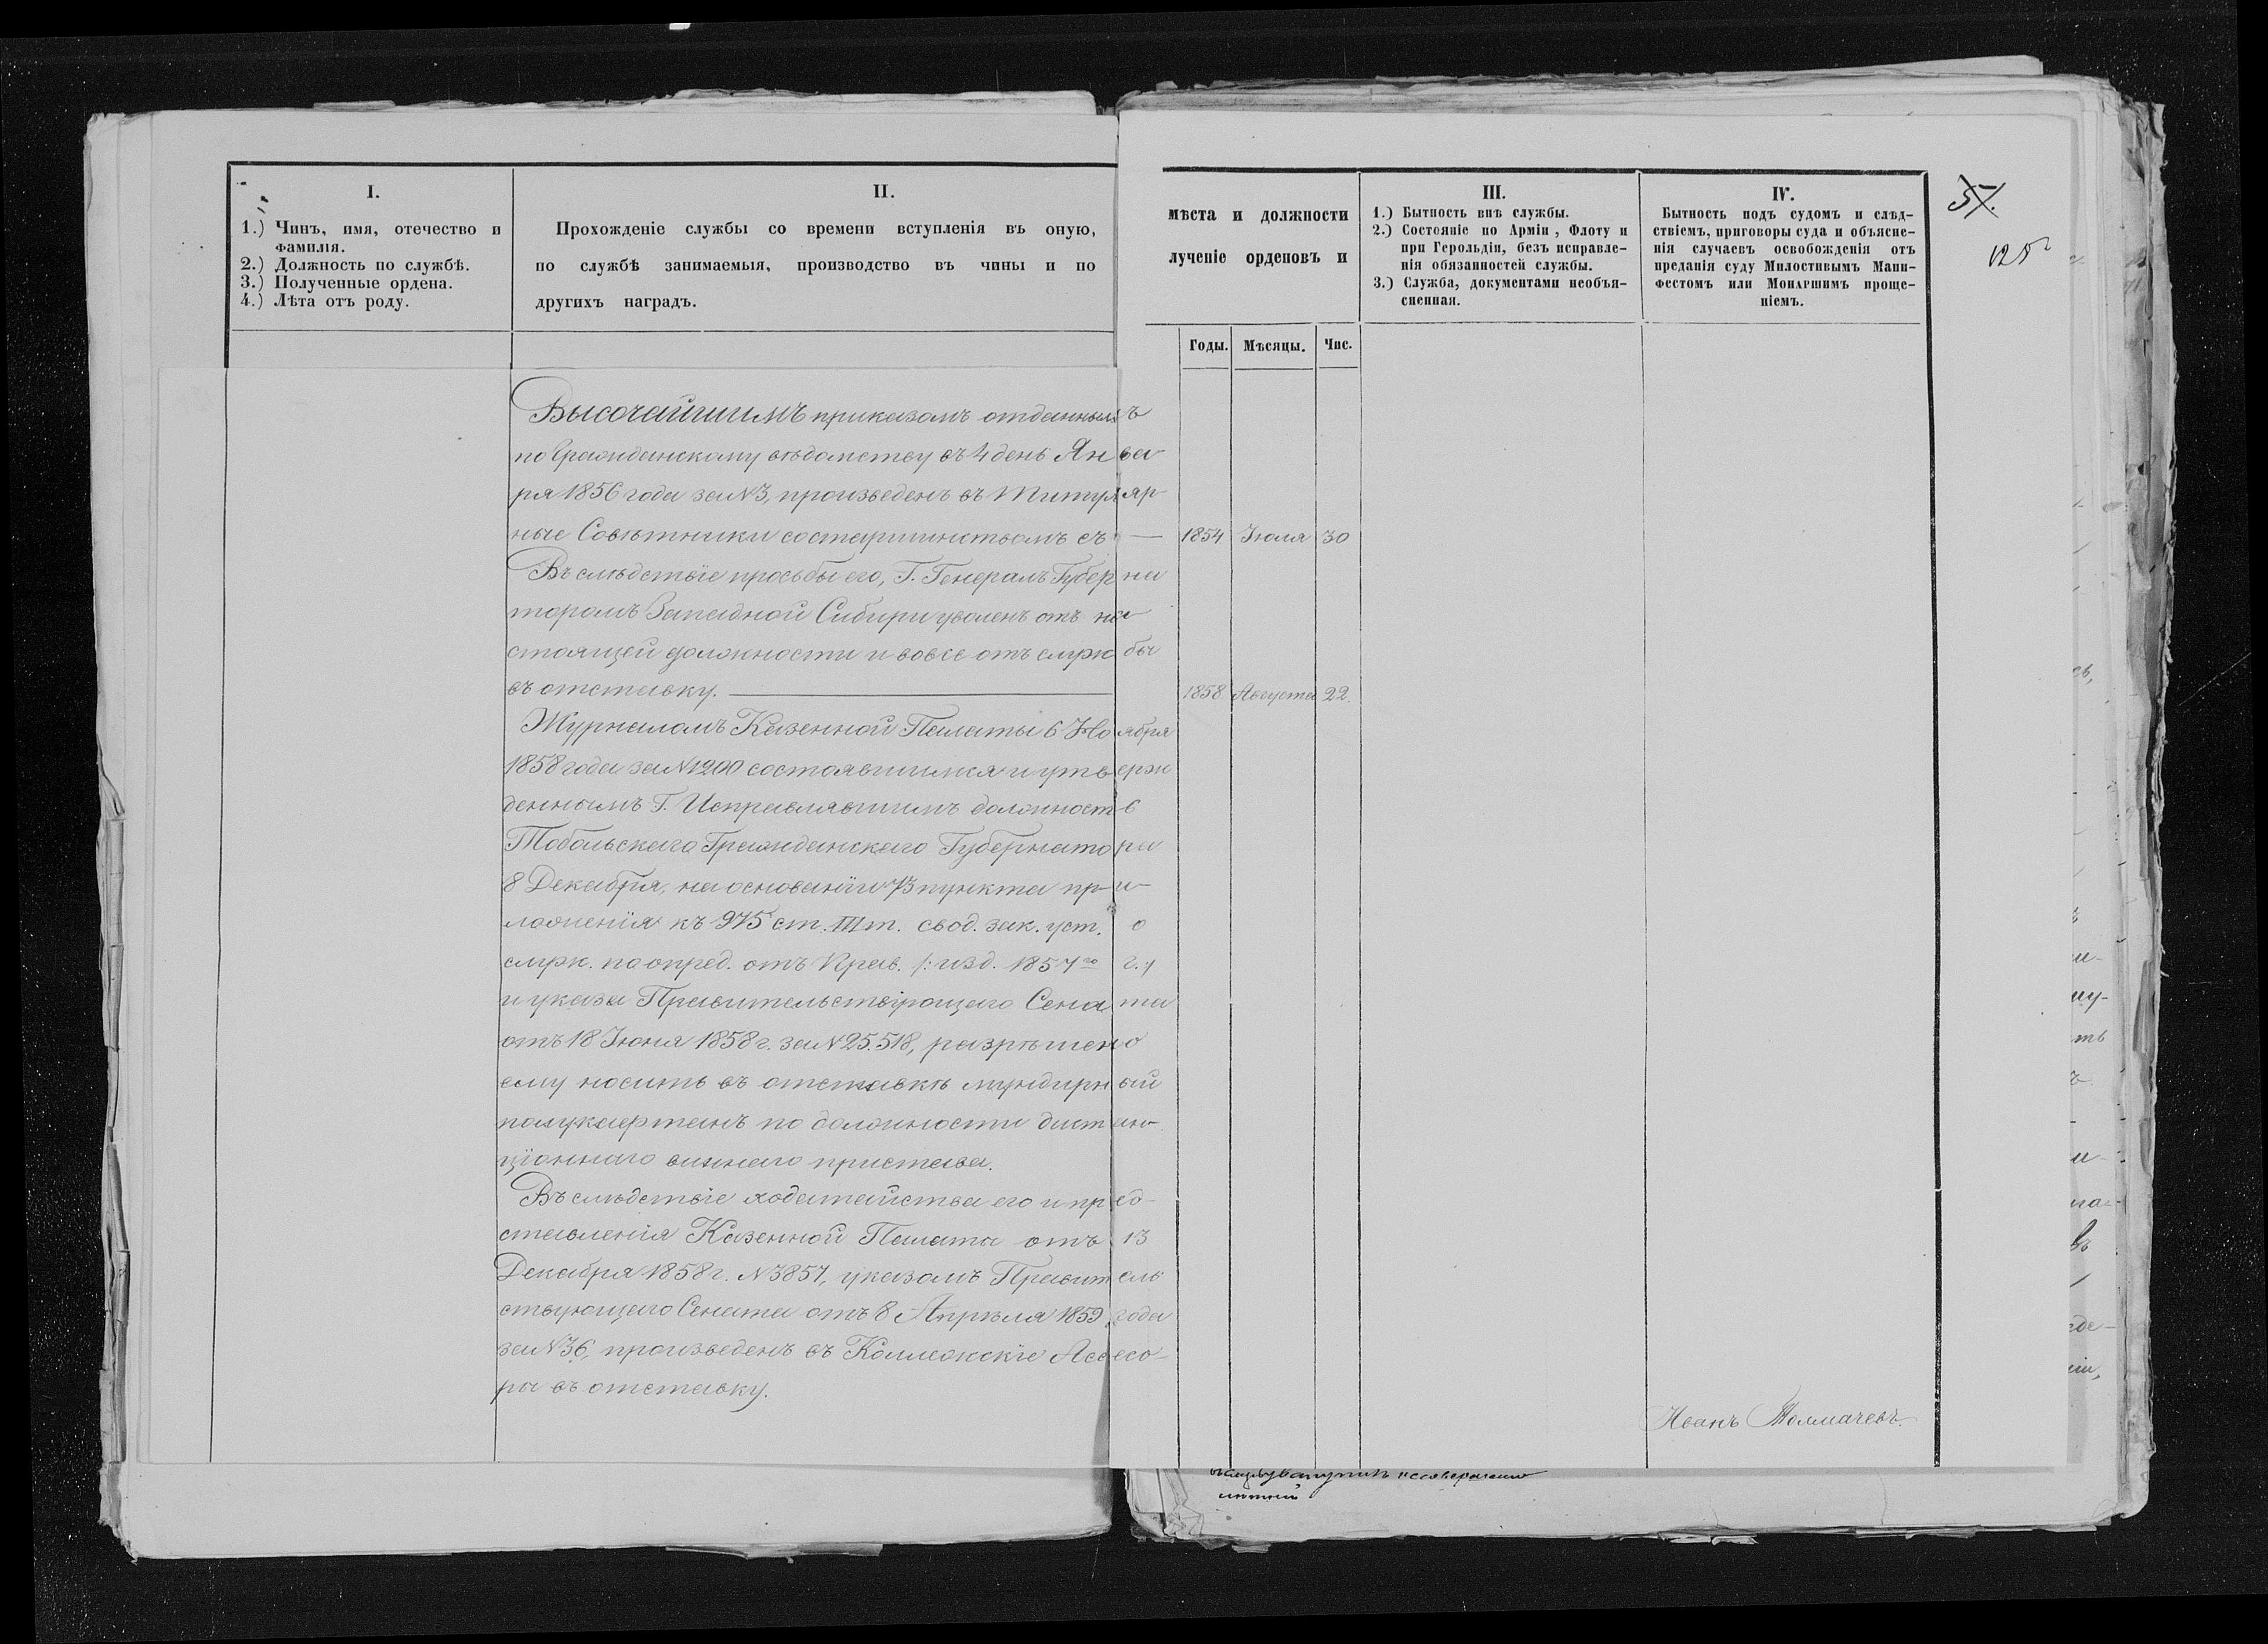 I.
1.) Чинъ, имя, отечество и
фамилія.
2.) Должность по службѣ.
3.) Полученные ордена.
4.) Лѣта отъ роду.
II.
Прохожденіе службы со времени вступленія въ оную, мѣста и должности
по службѣ занимаемыя, производство въ чины и по лученіе орденовъ и
другихъ наградъ.
Годы. Мѣсяцы. Чис.
III.
1.) Бытность внѣ службы.
2.) Состояніе по Арміи, Флоту и
при Герольдіи, безъ исправле-
нія обязанностей службы.
3.) Служба, документами необъя-
сненная.
IV.
Бытность подъ судомъ и слѣд-
ствіемъ, приговоры суда и объясне-
нія случаевъ освобожденія отъ
преданія суду Милостивымъ Мани-
фестомъ или Монаршимъ проще-
ніемъ.
57.
Высочайшимъ приказомъ отданнымъ
по Гражданскому вѣдомству въ 4 день Янва
ря 1856 года за № 3, произведенъ въ Титуляр
ные Совѣтники со старшинствомъ съ — 1854 Іюля 30
Въ слѣдствіе просьбы его, Г. Генералъ Губерна
торомъ Западной Сибири уволенъ отъ на
стоящей должности и вовсе отъ служ бы
въ отставку. 1858 Августа 22.
Журналомъ Казенной Палаты 6 Ноября
1858 года за № 1200 состоявшимся и утвержд
деннымъ Г. Исправлявшимъ должность
Тобольскаго Гражданскаго Губернатора
8 Декабря, на основаніи 73 пункта при-
ложенія къ 975 ст. III т. свод. зак. уст. о
служ. по опред. отъ Прав. /: изд. 1857 г. :/
и указа Правительствующаго Сената
отъ 18 Іюня 1858 г. за № 25.518, разрѣшено
ему носить въ отставкѣ мундирный
полукафтанъ по должности дистан-
ціоннаго виннаго пристава.
Въ слѣдствіе ходатайства его и пред-
ставленія Казенной Палаты отъ 13
Декабря 1858 г. № 3857, указомъ Правитель
ствующаго Сената отъ 8 Апрѣля 1859 года
за № 36, произведенъ въ Коллежскіе Ассесо-
ры въ отставку.
Иванъ Толмачевъ.